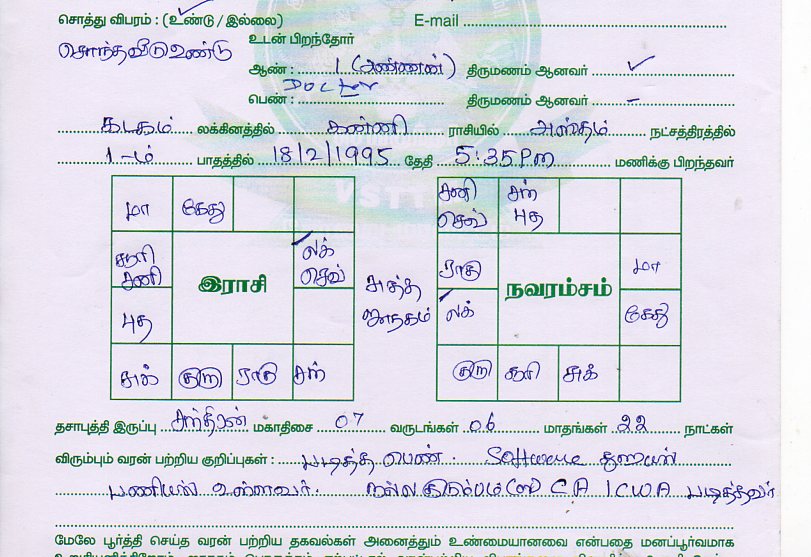 சொத்து விபரம் : (உண்டு / இல்லை) E-mail
உடன் பிறந்தோர்
சொந்தவீடு உண்டு
ஆண் : 1 (அண்ணன்) திருமணம் ஆனவர் ✓
Doctor
பெண் : திருமணம் ஆனவர் –
கடகம் லக்கினத்தில் கன்னி ராசியில் அஸ்தம் நட்சத்திரத்தில்
1-ம் பாதத்தில் 18/2/1995 தேதி 5:35 PM மணிக்கு பிறந்தவர்
VSTT
மா கேது
சூரி சனி
லக் செவ்
இராசி
புத
சுக் குரு ராகு சந்
சுத்த ஜாதகம்
சனி செவ் சந் புத
ராகு மா
நவரம்சம்
லக் கேது
குரு சூரி சுக்
தசாபுத்தி இருப்பு சந்திரன் மகாதிசை 07 வருடங்கள் 06 மாதங்கள் 22 நாட்கள்
விரும்பும் வரன் பற்றிய குறிப்புகள் : படித்த பெண். Software துறையில்
பணியில் உள்ளவர். நல்ல குடும்பம் C A I CWA படித்தவர்
மேலே பூர்த்தி செய்த வரன் பற்றிய தகவல்கள் அனைத்தும் உண்மையானவை என்பதை மனப்பூர்வமாக